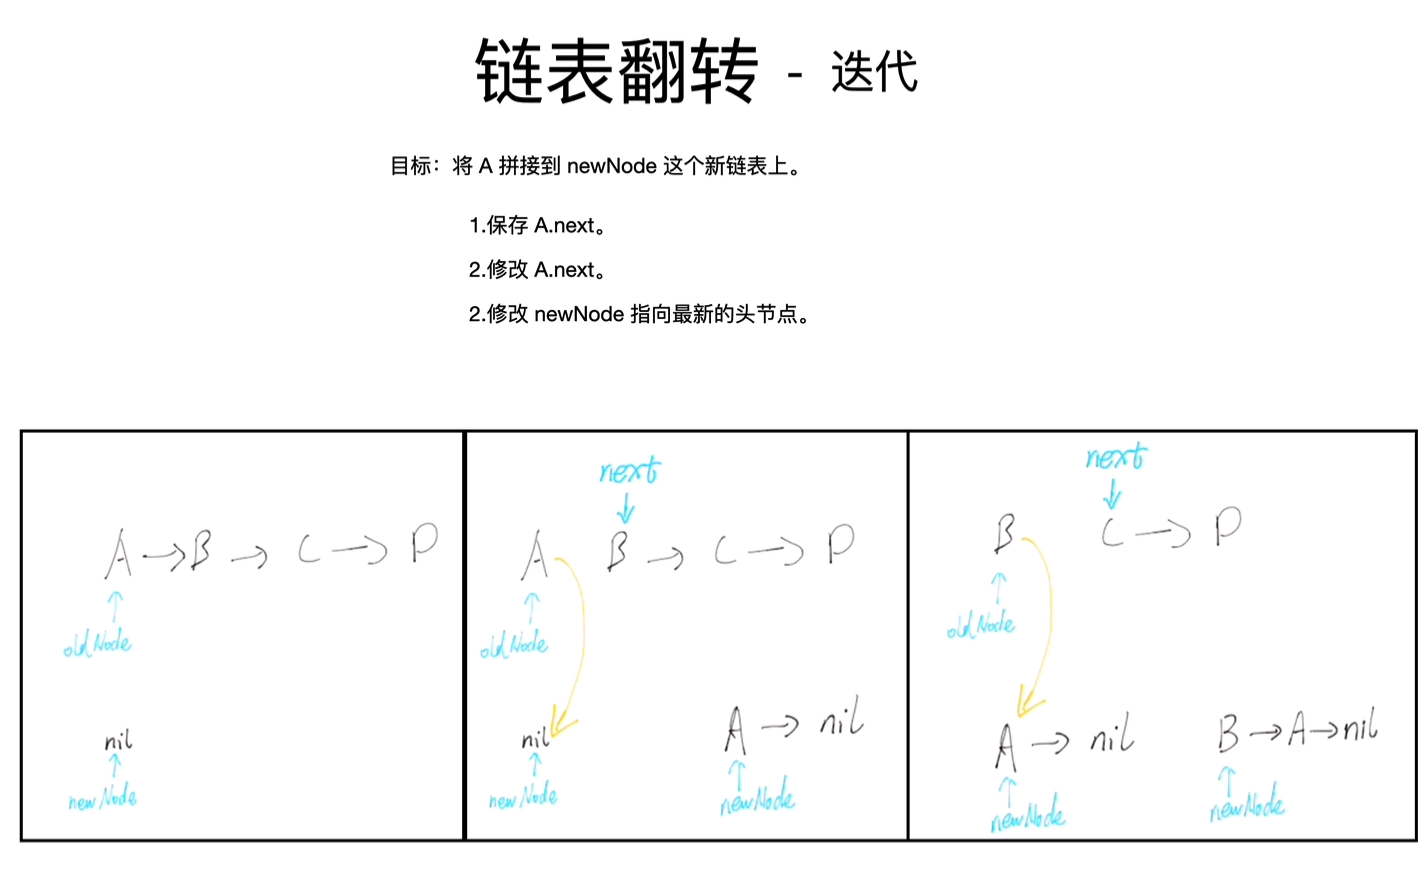 链表翻转 - 迭代
目标：将 A 拼接到 newNode 这个新链表上。
1.保存 A.next。
2.修改 A.next。
2.修改 newNode 指向最新的头节点。
A → B → C → D
oldNode
nil
newNode
next
A B → C → D
oldNode
nil
newNode
A → nil
newNode
next
B C → D
oldNode
A → nil
newNode
B → A → nil
newNode